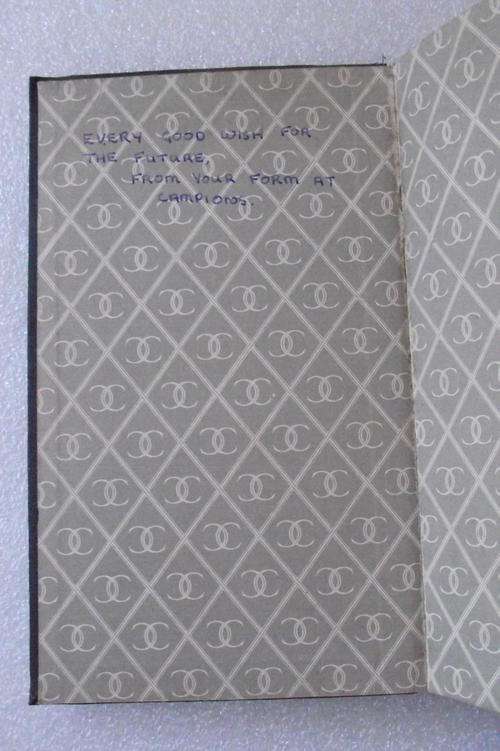 EVERY GOOD WISH FOR
THE FUTURE,
FROM YOUR FORM AT
LAMPIONS.